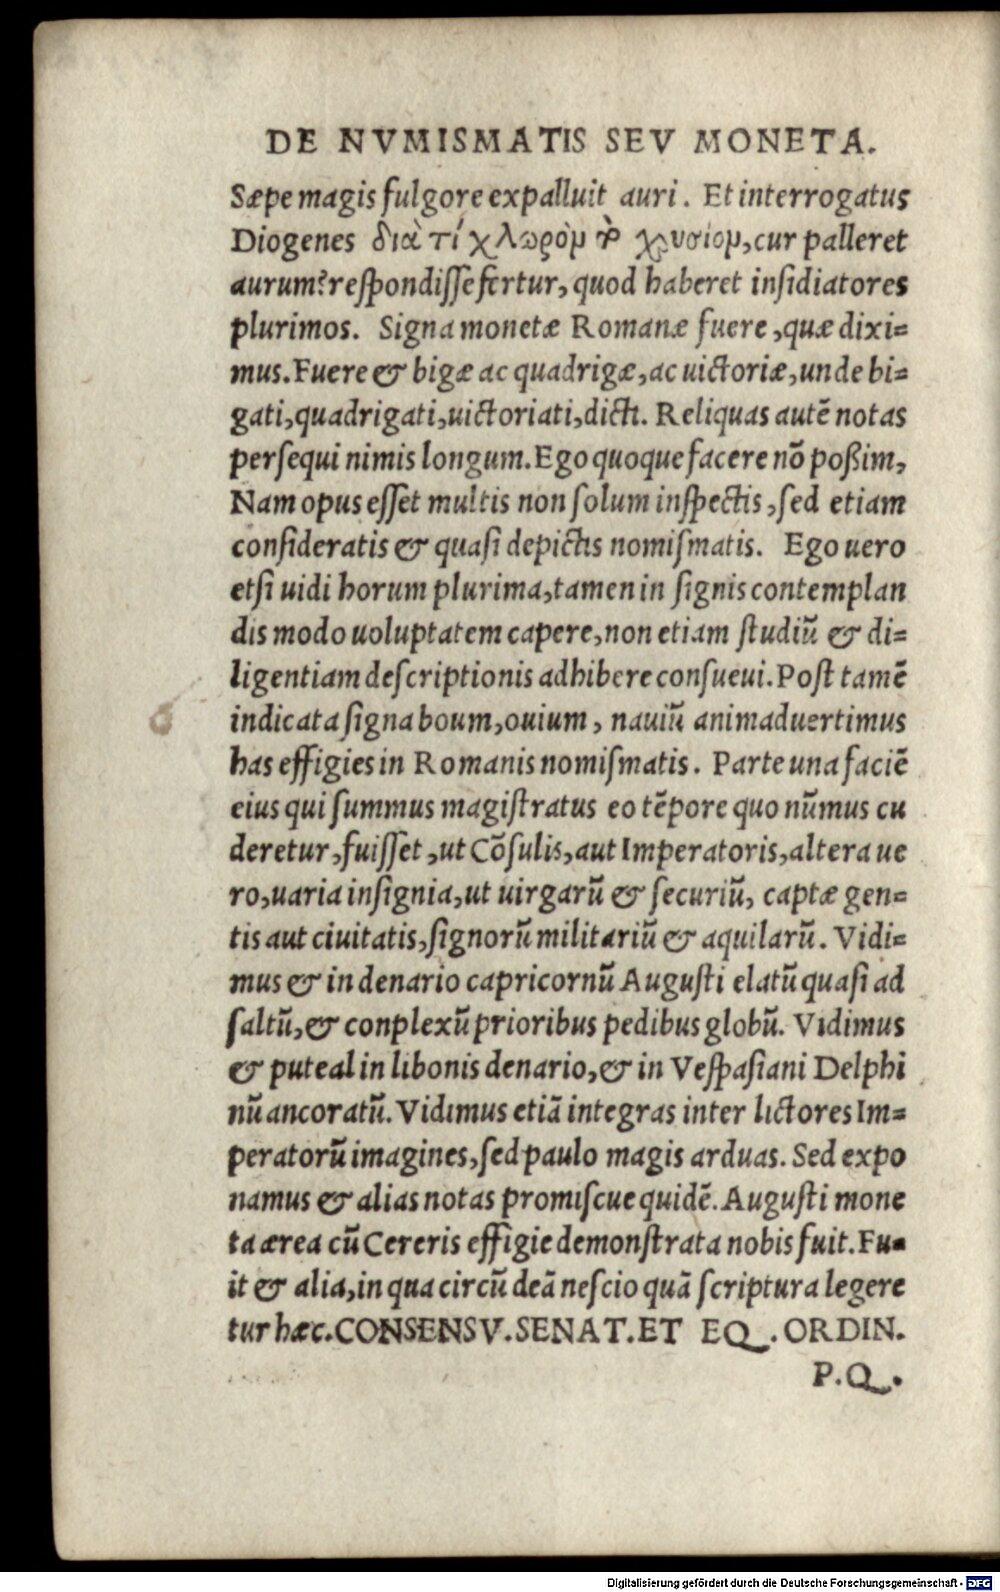 DE NVMISMATIS SEV MONETA.
Sæpe magis fulgore expalluit auri. Et interrogatus
Diogenes διὰ τί χλωρὸμ τὸ χρυσίομ, cur palleret
aurum? reſpondiſſe fertur, quod haberet inſidiatores
plurimos. Signa monetæ Romanæ fuere, quæ dixi=
mus. Fuere & bigæ ac quadrigæ, ac uictoriæ, unde bi=
gati, quadrigati, uictoriati, dicti. Reliquas autē notas
perſequi nimis longum. Ego quoque facere nō poßim,
Nam opus eſſet multis non ſolum inſpectis, ſed etiam
conſideratis & quaſi depictis nomiſmatis. Ego uero
etſi uidi horum plurima, tamen in ſignis contemplan
dis modo uoluptatem capere, non etiam ſtudiū & di=
ligentiam deſcriptionis adhibere conſueui. Poſt tamē
indicata ſigna boum, ouium, nauiū animaduertimus
has effigies in Romanis nomiſmatis. Parte una faciē
eius qui ſummus magiſtratus eo tēpore quo nūmus cu
deretur, fuiſſet, ut Cōſulis, aut Imperatoris, altera ue
ro, uaria inſignia, ut uirgarū & ſecuriū, captæ gen=
tis aut ciuitatis, ſignorū militariū & aquilarū. Vidi=
mus & in denario capricornū Auguſti elatū quaſi ad
ſaltū, & conplexū prioribus pedibus globū. Vidimus
& puteal in libonis denario, & in Veſpaſiani Delphi
nū ancoratū. Vidimus etiā integras inter lictores Im=
peratorū imagines, ſed paulo magis arduas. Sed expo
namus & alias notas promiſcue quidē. Auguſti mone
ta ærea cū Cereris effigie demonſtrata nobis fuit. Fu=
it & alia, in qua circū deā neſcio quā ſcriptura legere
tur hæc. CONSENSV. SENAT. ET EQ. ORDIN.
P. Q.
Digitalisierung gefördert durch die Deutsche Forschungsgemeinschaft - DFG